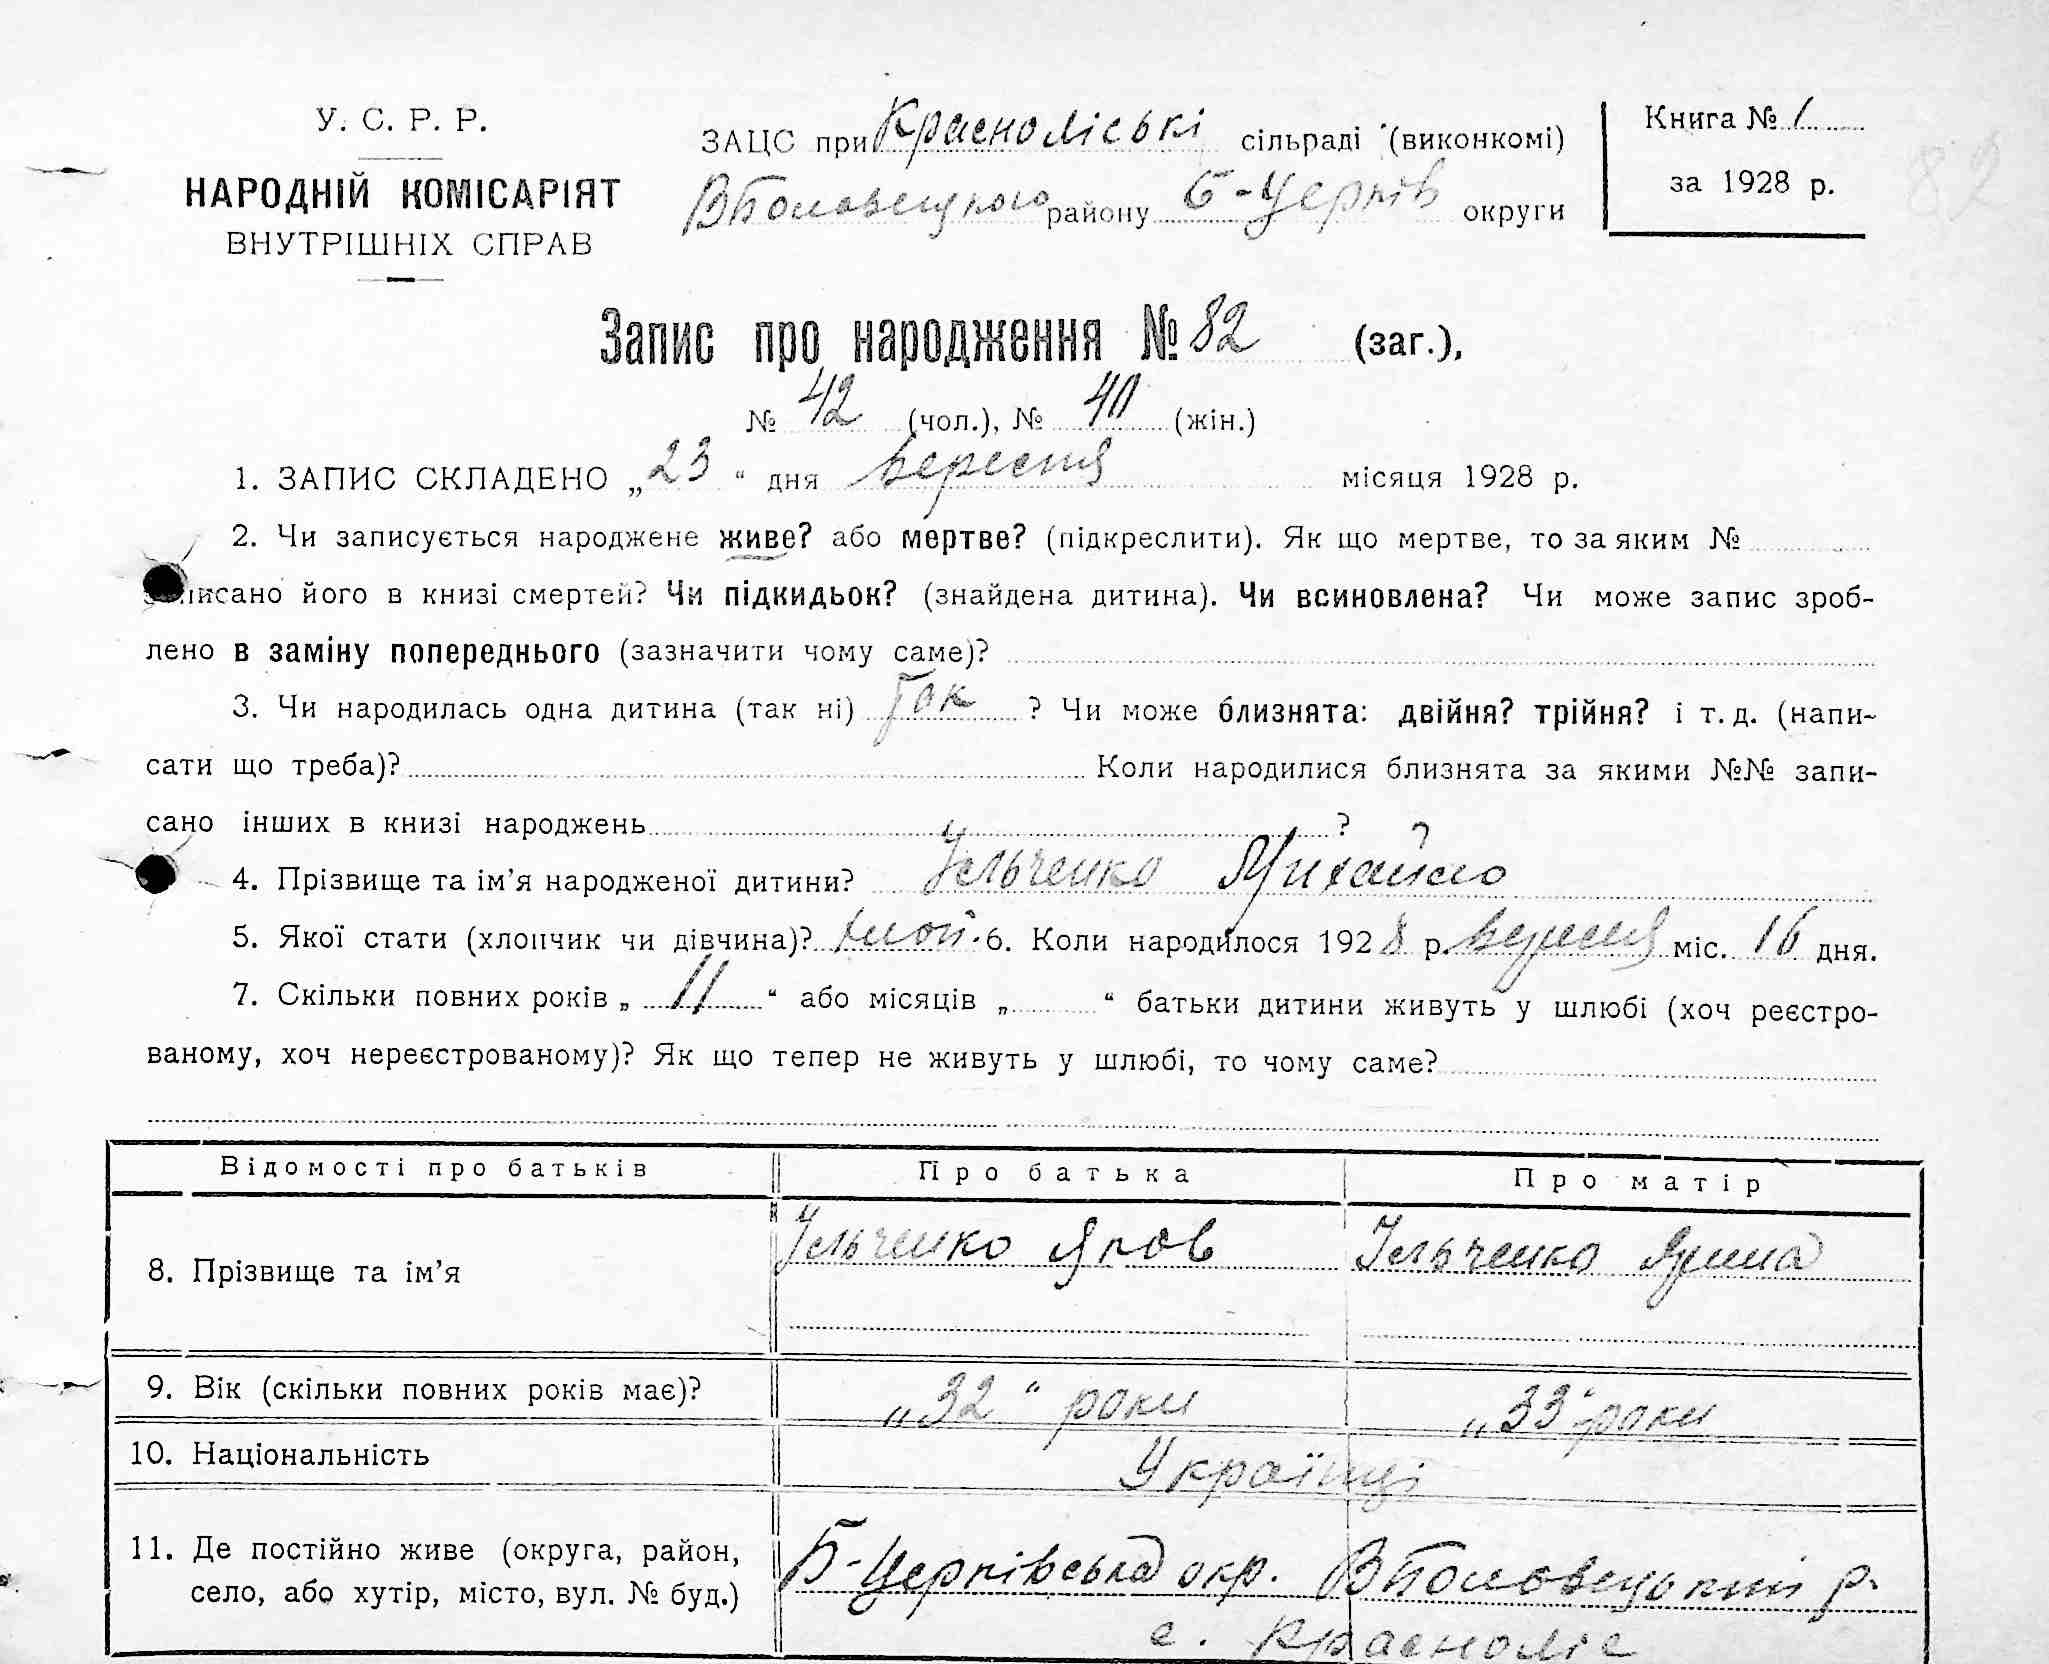 У. С. Р. Р.
НАРОДНІЙ КОМІСАРІЯТ
ВНУТРІШНІХ СПРАВ
ЗАЦС при Красноліські сільраді (виконкомі)
ВПоловецького району Б-Церків округи
Книга № 1
за 1928 р.
82
Запис про народження № 82 (заг.),
№ 42 (чол.), № 40 (жін.)
1. ЗАПИС СКЛАДЕНО „23“ дня вересня місяця 1928 р.
2. Чи записується народжене живе? або мертве? (підкреслити). Як що мертве, то за яким №
записано його в книзі смертей? Чи підкидьок? (знайдена дитина). Чи всиновлена? Чи може запис зроб-
лено в заміну попереднього (зазначити чому саме)?
3. Чи народилась одна дитина (так ні) так ? Чи може близнята: двійня? трійня? і т. д. (напи-
сати що треба)? Коли народилися близнята за якими №№ запи-
сано інших в книзі народжень ?
4. Прізвище та ім’я народженої дитини? Ільченко Михайло
5. Якої стати (хлопчик чи дівчина)? 6. Коли народилося 1928 р. вересня міс. 16 дня.
7. Скільки повних років „ 11 “ або місяців „ “ батьки дитини живуть у шлюбі (хоч реєстро-
ваному, хоч нереєстрованому)? Як що тепер не живуть у шлюбі, то чому саме?
Відомості про батьків Про батька Про матір
8. Прізвище та ім’я Ільченко Яков Ільченко Ярина
9. Вік (скільки повних років має)? „32“ роки „33“ роки
10. Національність Українці
11. Де постійно живе (округа, район,
село, або хутір, місто, вул. № буд.)
Б-Церківська окр. ВПоловецький р.
с. Красноліс